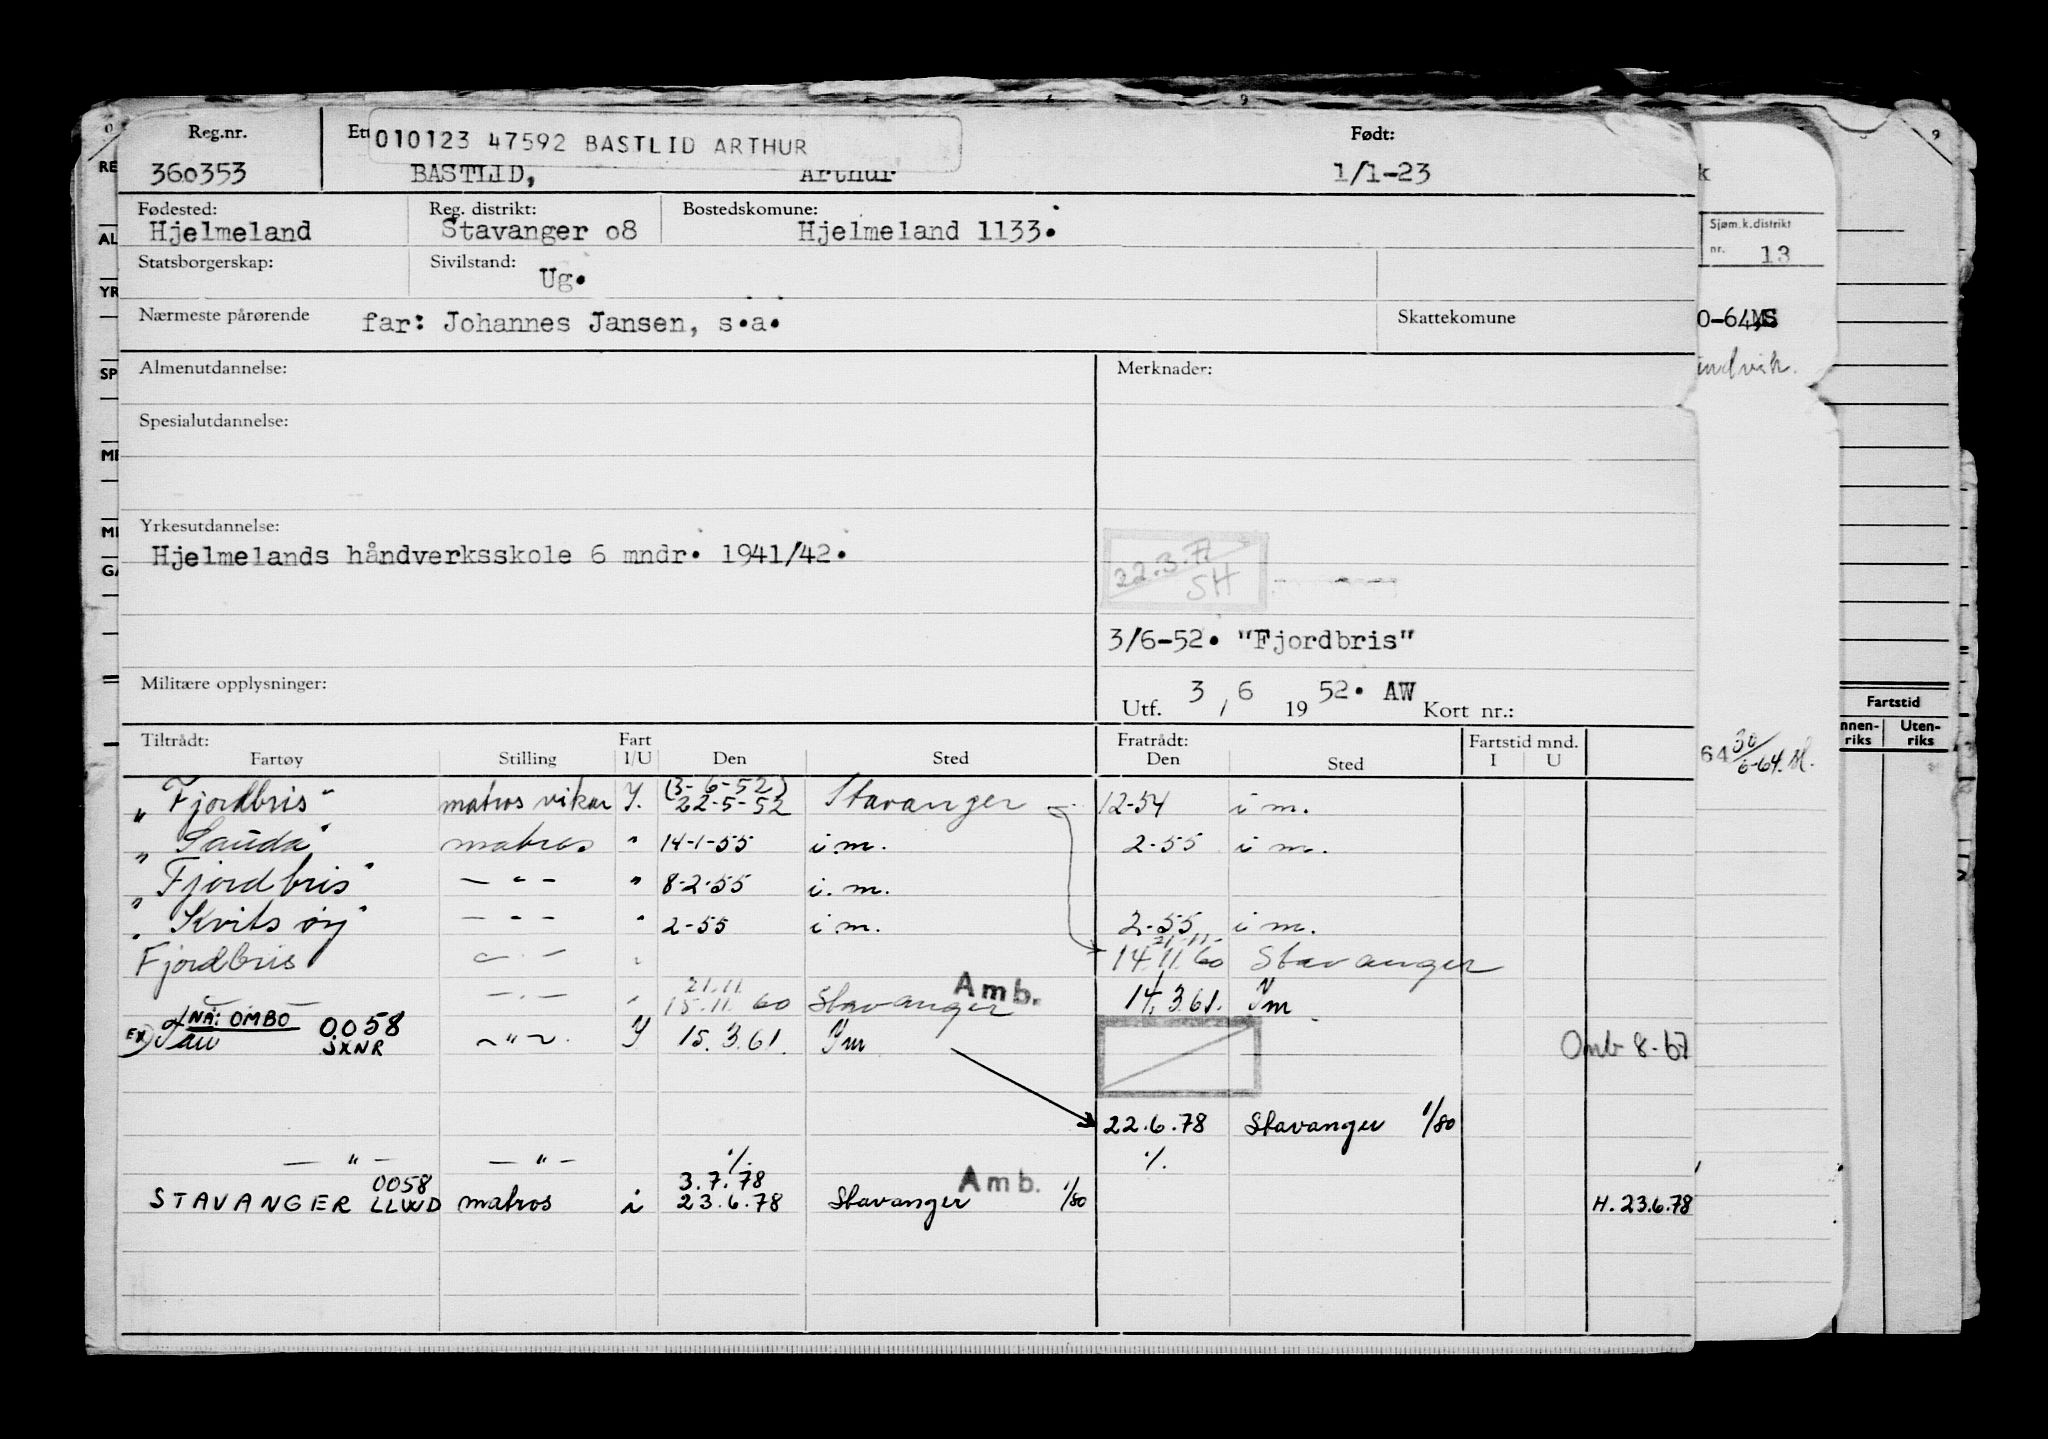 Reg.nr. 010123 47592 BASTLID ARTHUR Født:
360353 BASTLID, Arthur 1/1-23
Fødested: Reg. distrikt: Bostedskomune:
Hjelmeland Stavanger o8 Hjelmeland 1133.
Sjøm.k.distrikt
nr. 13
Statsborgerskap: Sivilstand: Ug.
Nærmeste pårørende far: Johannes Jansen, s.a. Skattekomune
Almenutdannelse: Merknader:
Spesialutdannelse:
Yrkesutdannelse:
Hjelmelands håndverksskole 6 mndr. 1941/42.
22.3.77
SH
3/6-52. "Fjordbris"
Militære opplysninger:
Utf. 3 / 6 19 52. AW Kort nr.:
Fartstid
Tiltrådt: Fart Fratrådt: Fartstid mnd.
Fartøy Stilling I/U Den Sted Den Sted I U
"Fjordbris" matros vikar I. (3-6-52) 22-5-52 Stavanger 12-54 i m.
"Sauda" matros " 14-1-55 i m. 2-55 i m.
"Fjordbris" — " — " 8-2-55 i. m.
"Kvitsøy" — " — " 2-55 i m. 2-55 i m.
Fjordbris — " — " 21-11- 14.11.60 Stavanger
— — — " — " 21.11 15.11.60 Stavanger Amb. 14.3.61. Im
NÅ: OMBO 0058
EX) Tau SXNR — " — I 15.3.61. Im Omb 8-67
22.6.78 Stavanger 1/80
— " — — " — ./. ./.
0058 3.7.78 Amb.
STAVANGER LLWD matros i 23.6.78 Stavanger 1/80 H. 23.6.78